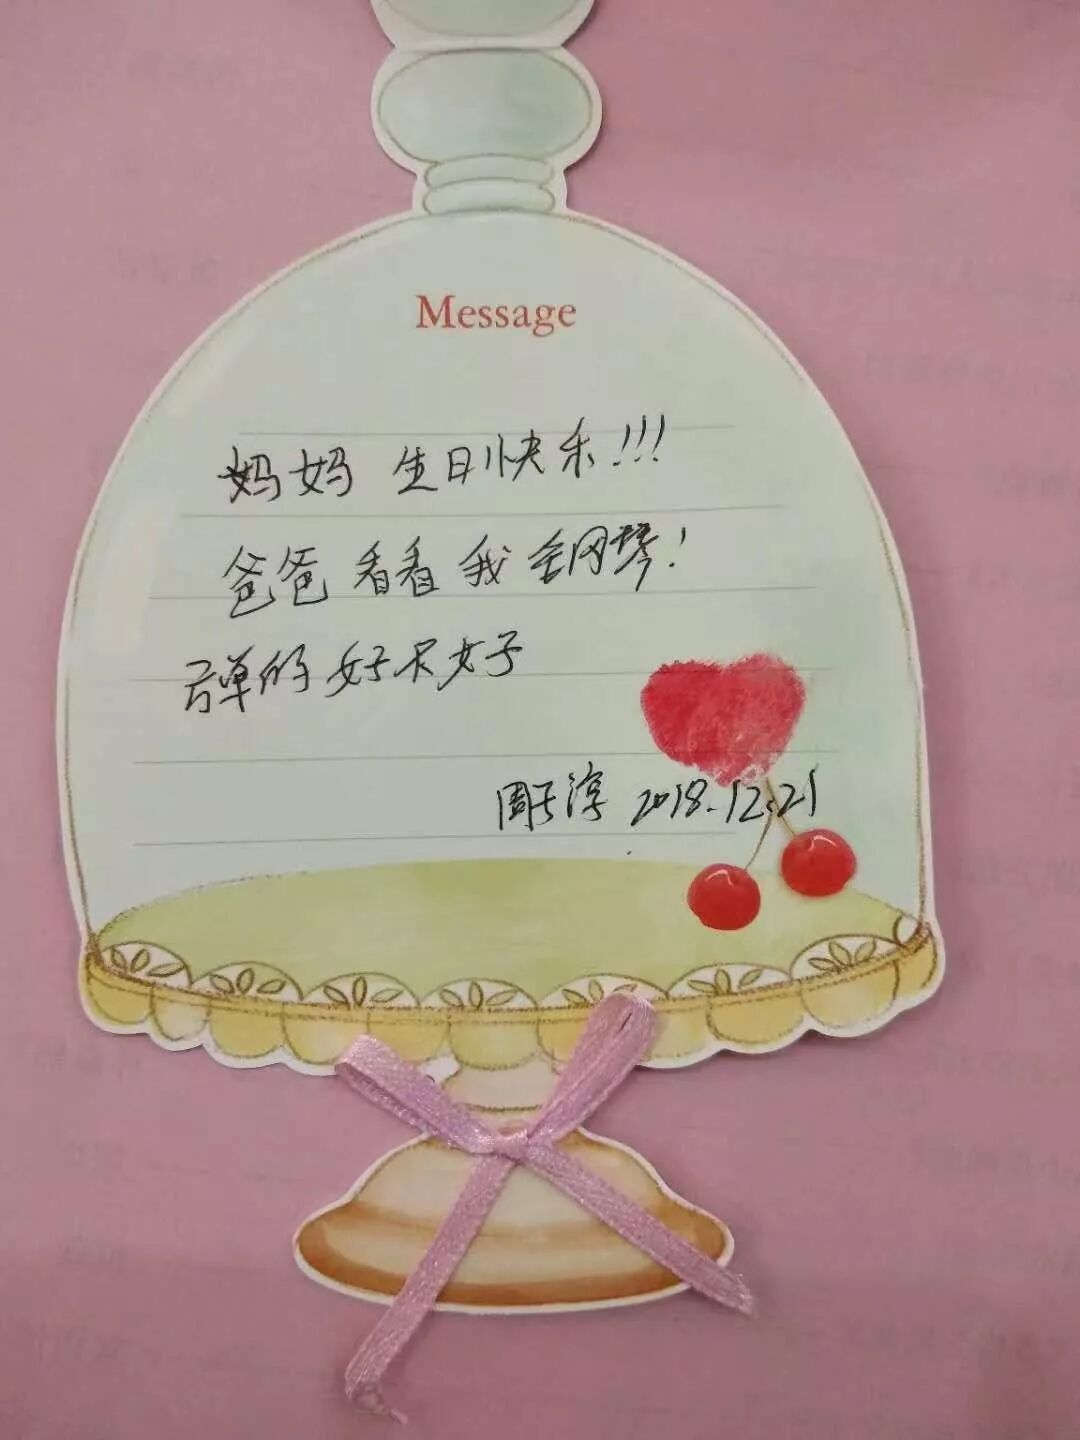 Message
妈妈 生日快乐!!!
爸爸 看看 我 钢琴!
弹的 好不好
周子淳 2018.12.21